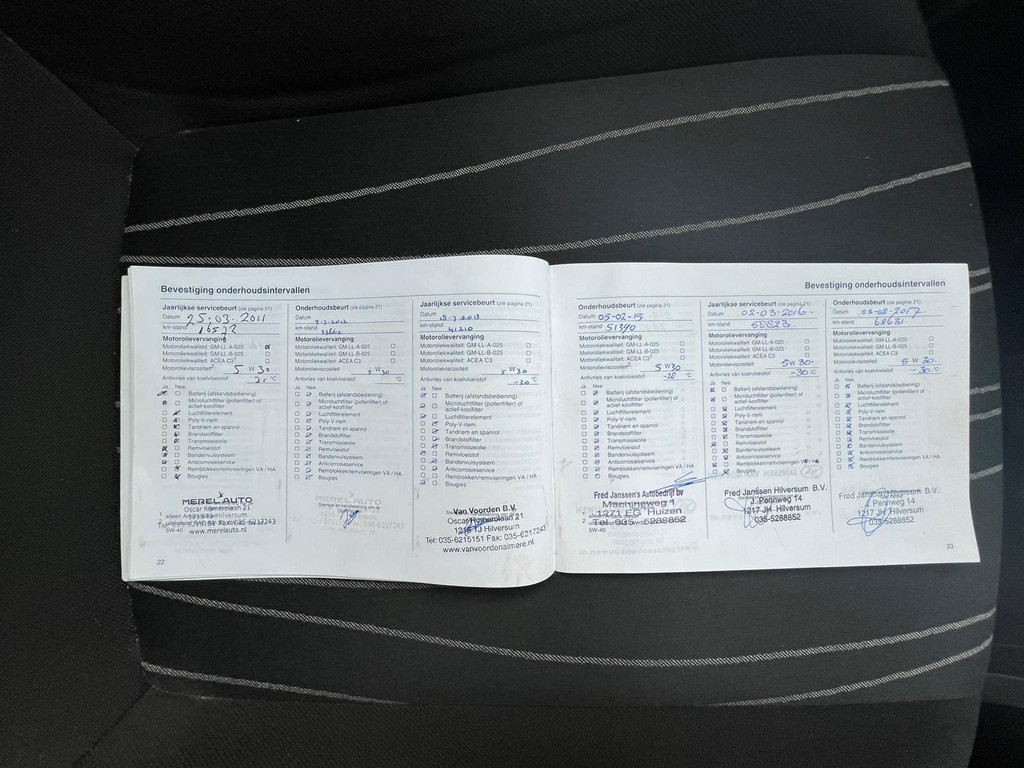 Bevestiging onderhoudsintervallen
Jaarlijkse servicebeurt (zie pagina 21)
Datum 25-03-2011
km-stand 16572
Motorolievervanging
Motoroliekwaliteit: GM-LL-A-025
Motoroliekwaliteit: GM-LL-B-025
Motoroliekwaliteit: ACEA C3
Motorolieviscositeit 5 W 30
Antivries van koelvloeistof °C
Ja Nee
Batterij (afstandsbediening)
Microluchtfilter (pollenfilter) of
actief-koolfilter
Luchtfilterelement
Poly-V-riem
Tandriem en spanrol
Brandstoffilter
Transmissieolie
Remvloeistof
Bandenvulsysteem
Anticorrosieservice
Remblokken/remvoeringen VA / HA
Bougies
MEREL AUTO
Oscar Romerolaan 21
1216 TJ Hilversum
www.merelauto.nl
5W-40
22
Onderhoudsbeurt (zie pagina 21)
Datum
km-stand
Motorolievervanging
Motoroliekwaliteit: GM-LL-A-025
Motoroliekwaliteit: GM-LL-B-025
Motoroliekwaliteit: ACEA C3
Motorolieviscositeit 5 W 30
Antivries van koelvloeistof °C
Ja Nee
Batterij (afstandsbediening)
Microluchtfilter (pollenfilter) of
actief-koolfilter
Luchtfilterelement
Poly-V-riem
Tandriem en spanrol
Brandstoffilter
Transmissieolie
Remvloeistof
Bandenvulsysteem
Anticorrosieservice
Remblokken/remvoeringen VA / HA
Bougies
MEREL AUTO
Jaarlijkse servicebeurt (zie pagina 21)
Datum
km-stand 41210
Motorolievervanging
Motoroliekwaliteit: GM-LL-A-025
Motoroliekwaliteit: GM-LL-B-025
Motoroliekwaliteit: ACEA C3
Motorolieviscositeit 5 W 30
Antivries van koelvloeistof -30 °C
Ja Nee
Batterij (afstandsbediening)
Microluchtfilter (pollenfilter) of
actief-koolfilter
Luchtfilterelement
Poly-V-riem
Tandriem en spanrol
Brandstoffilter
Transmissieolie
Remvloeistof
Bandenvulsysteem
Anticorrosieservice
Remblokken/remvoeringen VA / HA
Bougies
Van Voorden B.V.
Oscar Romerolaan 21
1216 TJ Hilversum
Tel: 035-6215151 Fax: 035-6217243
www.vanvoordenalmere.nl
Bevestiging onderhoudsintervallen
Onderhoudsbeurt (zie pagina 21)
Datum 05-02-15
km-stand 51390
Motorolievervanging
Motoroliekwaliteit: GM-LL-A-025
Motoroliekwaliteit: GM-LL-B-025
Motoroliekwaliteit: ACEA C3
Motorolieviscositeit 5 W30
Antivries van koelvloeistof -28 °C
Ja Nee
Batterij (afstandsbediening)
Microluchtfilter (pollenfilter) of
actief-koolfilter
Luchtfilterelement
Poly-V-riem
Tandriem en spanrol
Brandstoffilter
Transmissieolie
Remvloeistof
Bandenvulsysteem
Anticorrosieservice
Remblokken/remvoeringen VA / HA
Bougies
Fred Janssen's Autobedrijf bv
Machineweg 1
1271 EG Huizen
Tel. 035-5288852
5W-40
Jaarlijkse servicebeurt (zie pagina 21)
Datum 02-03-2016
km-stand 58823
Motorolievervanging
Motoroliekwaliteit: GM-LL-A-025
Motoroliekwaliteit: GM-LL-B-025
Motoroliekwaliteit: ACEA C3
Motorolieviscositeit 5W 30
Antivries van koelvloeistof -30 °C
Ja Nee
Batterij (afstandsbediening)
Microluchtfilter (pollenfilter) of
actief-koolfilter
Luchtfilterelement
Poly-V-riem
Tandriem en spanrol
Brandstoffilter
Transmissieolie
Remvloeistof
Bandenvulsysteem
Anticorrosieservice
Remblokken/remvoeringen VA / HA
Bougies
Fred Janssen Hilversum B.V.
J. Pennweg 14
1217 JH Hilversum
035-5288852
Onderhoudsbeurt (zie pagina 21)
Datum 02-02-2017
km-stand 68631
Motorolievervanging
Motoroliekwaliteit: GM-LL-A-025
Motoroliekwaliteit: GM-LL-B-025
Motoroliekwaliteit: ACEA C3
Motorolieviscositeit 5 W 30
Antivries van koelvloeistof -30 °C
Ja Nee
Batterij (afstandsbediening)
Microluchtfilter (pollenfilter) of
actief-koolfilter
Luchtfilterelement
Poly-V-riem
Tandriem en spanrol
Brandstoffilter
Transmissieolie
Remvloeistof
Bandenvulsysteem
Anticorrosieservice
Remblokken/remvoeringen VA / HA
Bougies
Fred Janssen Hilversum B.V.
J. Pennweg 14
1217 JH Hilversum
035-5288852
23